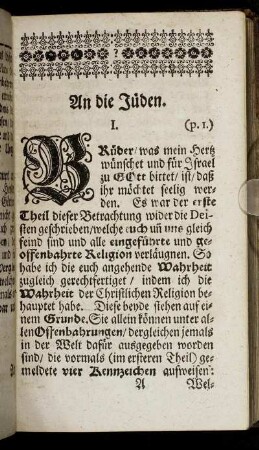 An die Jüden.
I. (p. 1.)
BRüder/ was mein Hertz
wünschet und für Israel
zu GOtt bittet/ ist/ daß
ihr möchtet seelig wer-
den. Es war der erste
Theil dieser Betrachtung wider die Dei-
sten geschrieben/welche euch uñ uns gleich
feind sind und alle eingeführte und ge-
offenbahrte Religion verläugnen. So
habe ich die euch angehende Wahrheit
zugleich gerechtfertiget/ indem ich die
Wahrheit der Christlichen Religion be-
hauptet habe. Diese beyde stehen auf ei-
nem Grunde. Sie allein können unter al-
len Offenbahrungen/ dergleichen jemals
in der Welt dafür ausgegeben worden
sind/ die vormals (im ersteren Theil) ge-
meldete vier Kennzeichen aufweisen:
A Wel-